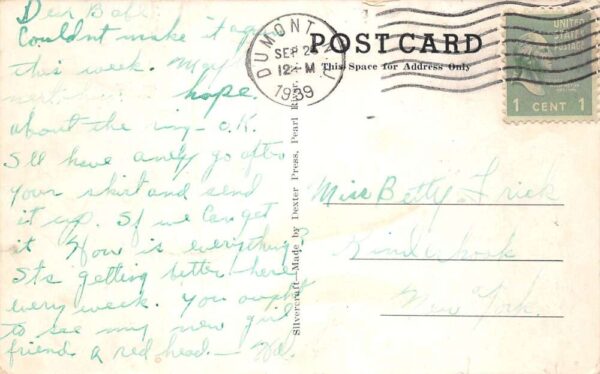 Dear Babe
Couldnt make it again
this week. Maybe
next hope.
about the ring – O.K.
I'll have andy go after
your skirt and send
it up. If we can get
it How is everything?
It's getting better here
every week. You ought
to see my new girl
friend. a red head –
DUMONT N.J.
SEP 2
12 – M
1939
POST CARD
This Space for Address Only
UNITED
STATES
POSTAGE
1 CENT 1
Silvercraft—Made by Dexter Press, Pearl
Miss Betty Frick
Kinderhook
New York.